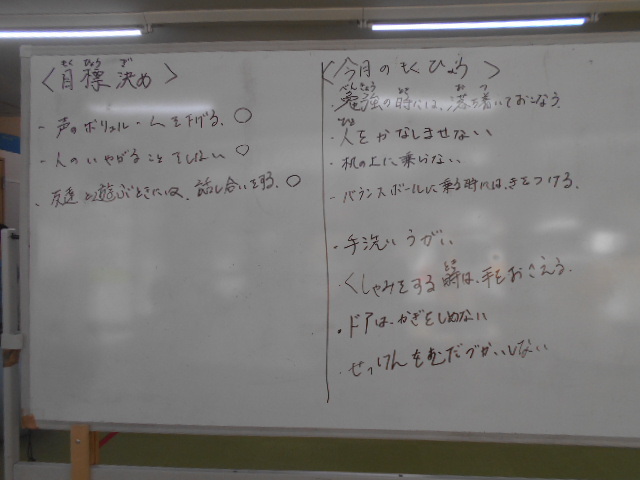 〈目標決め〉
もく ひょう ぎ
・声のボリュームを下げる。○
・人のいやがることをしない ○
・友達と遊ぶときには、話し合いをする。○
〈今月のもくひょう〉
べんきょう とき お つ
・勉強の時には、落ち着いておこなう。
ひと
・人をかなしませない
・机の上に乗らない。
・バランスボールに乗る時には、きをつける。
・手洗い うがい
とき
・くしゃみをする時は、手をおさえる。
・ドアは、かぎをしめない
・せっけんをむだづかいしない